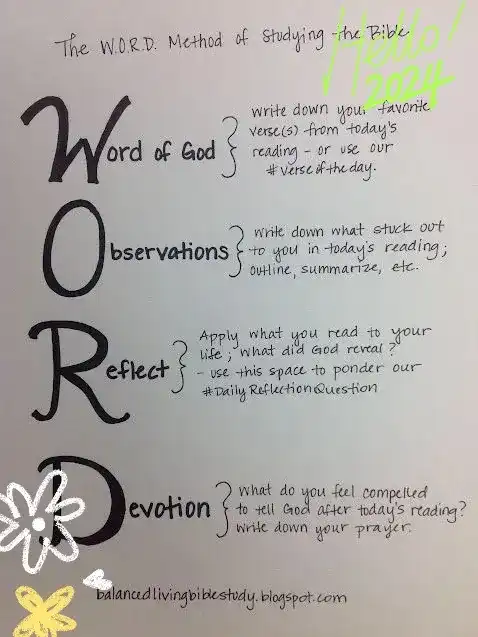 The W.O.R.D. Method of Studying the Bible
Hello!
2024
Word of God
Write down your favorite
verse(s) from today's
reading - or use our
#verseoftheday.
Observations
Write down what stuck out
to you in today's reading;
outline, summarize, etc.
Reflect
Apply what you read to your
life; what did God reveal?
- use this space to ponder our
#DailyReflectionQuestion
Devotion
What do you feel compelled
to tell God after today's reading?
Write down your prayer.
balancedlivingbiblestudy.blogspot.com